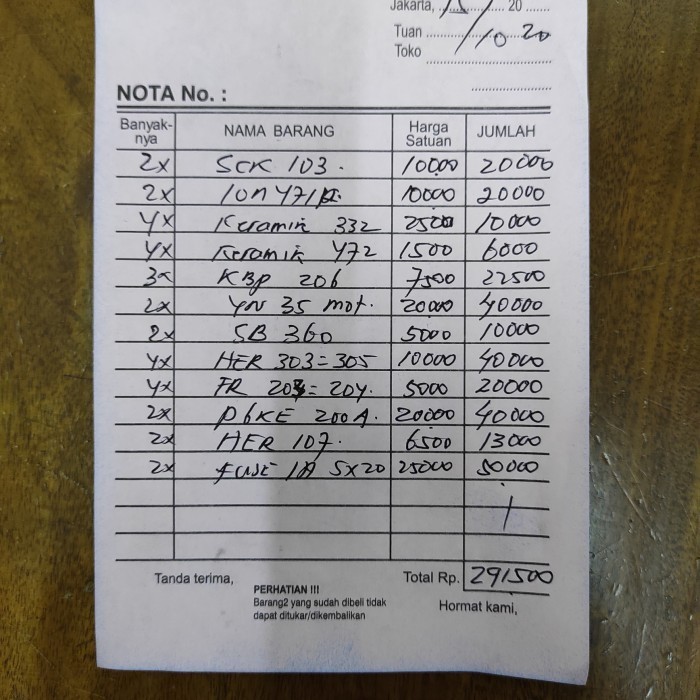 Jakarta, 15/ 20
Tuan /10 20
Toko
NOTA No. :
Banyak-nya NAMA BARANG Harga Satuan JUMLAH
2x SCK 103. 10000 20000
2x 10n 471K. 10000 20000
4x Keramik 332 2500 10000
4x Keramik 472 1500 6000
3x KBP 206 7500 22500
2x 35 mot. 20000 40000
2x SB 360 5000 10000
4x HER 303=305 10000 40000
4x FR 203=204. 5000 20000
2x P6KE 200A. 20000 40000
2x HER 107. 6500 13000
2x FUSE 1A 5x20 25000 50000
Tanda terima, Total Rp. 291500
PERHATIAN !!!
Barang2 yang sudah dibeli tidak
dapat ditukar/dikembalikan
Hormat kami,